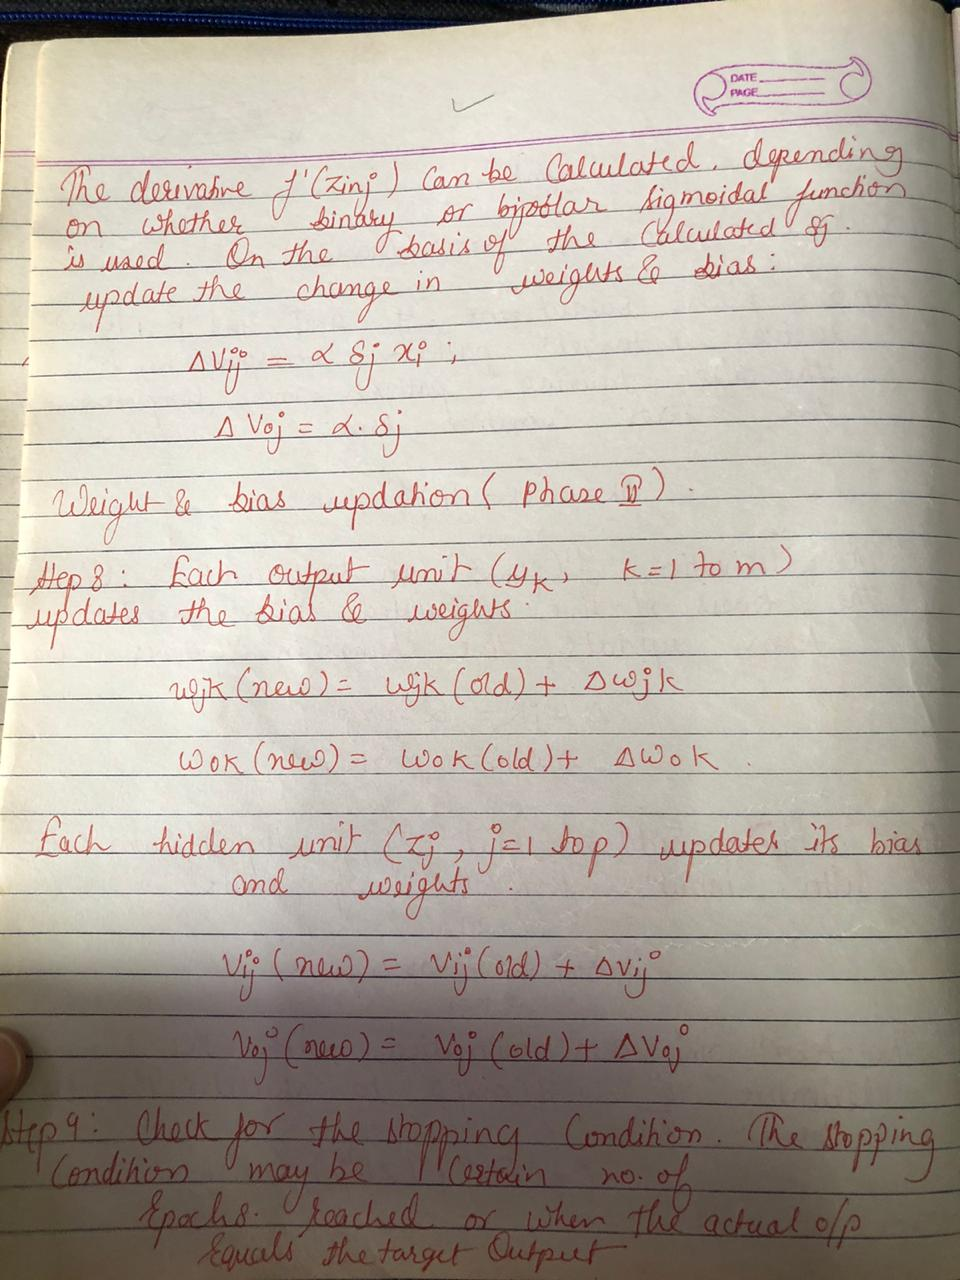 DATE
PAGE
The derivative f'(zinj) Can be Calculated. depending
on whether binary or bipolar sigmoidal function
is used. On the basis of the Calculated δj.
update the change in weights & bias:
ΔVij = α δj xi ;
Δ Voj = α. δj
Weight & bias updation ( phase III ) .
Step 8 : Each output unit (yk, k=1 to m)
updates the bias & weights.
wjk (new) = wjk (old) + Δwjk
wok (new) = wok (old) + Δwok .
Each hidden unit (zj, j=1 to p) updates its bias
and weights .
Vij (new) = Vij (old) + ΔVij
Voj (new) = Voj (old) + ΔVoj
Step 9: Check for the stopping Condition. The stopping
Condition may be Certain no. of
Epochs. reached or when the actual o/p
Equals the target Output